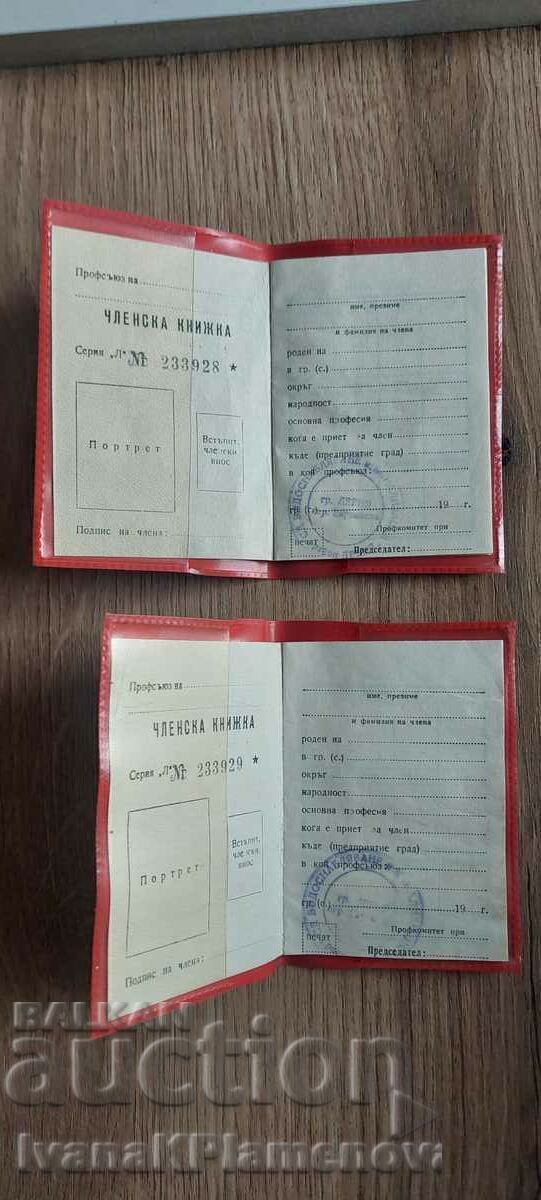 Профсъюз на
ЧЛЕНСКА КНИЖКА
Серия „Л" № 233928 ★
Портрет
Встъпит.
членски
внос
Подпис на члена:
име, презиме
и фамилия на члена
роден на
в гр. (с.)
окръг
народност
основна професия
кога е приет за член
къде (предприятие град)
в кой профсъюз:
гр. (с.) 19 г.
печат
Профкомитет при
Председател:
Профсъюз на
ЧЛЕНСКА КНИЖКА
Серия „Л" № 233929 ★
Портрет
Встъпит.
членски
внос
Подпис на члена:
име, презиме
и фамилия на члена
роден на
в гр. (с.)
окръг
народност
основна професия
кога е приет за член
къде (предприятие град)
в кой профсъюз:
гр. (с.) 19 г.
печат
Профкомитет при
Председател:
BALKAN
auction
IvanaKPlamenova